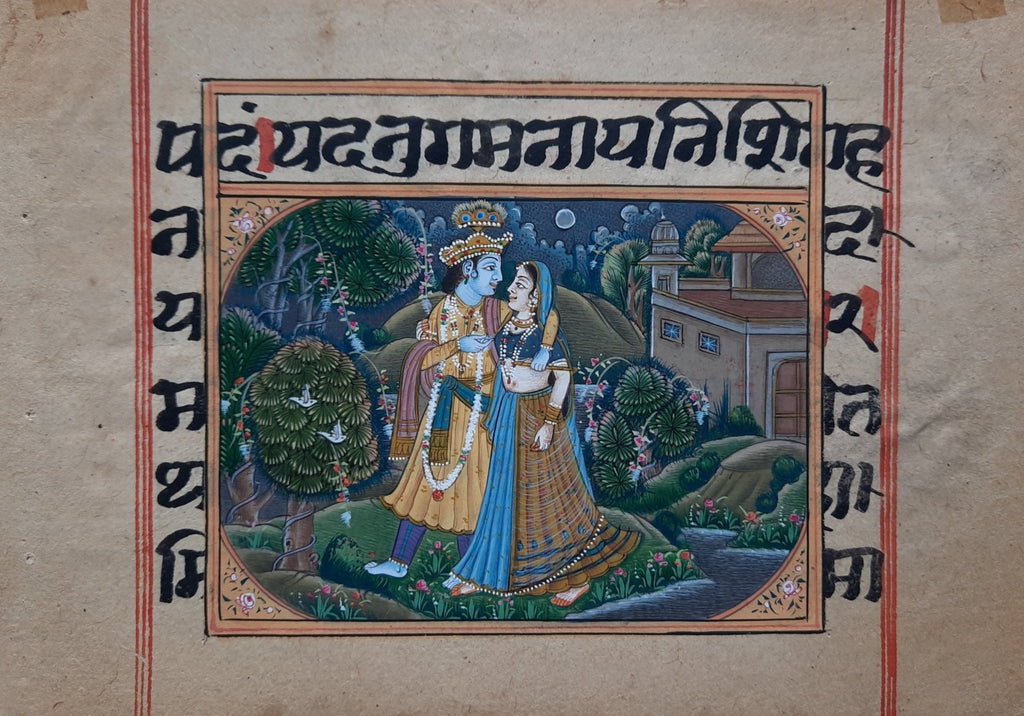 पदं।यदनुगमनायनिशिगह
न दा
य २।
म त
थ
मि मा